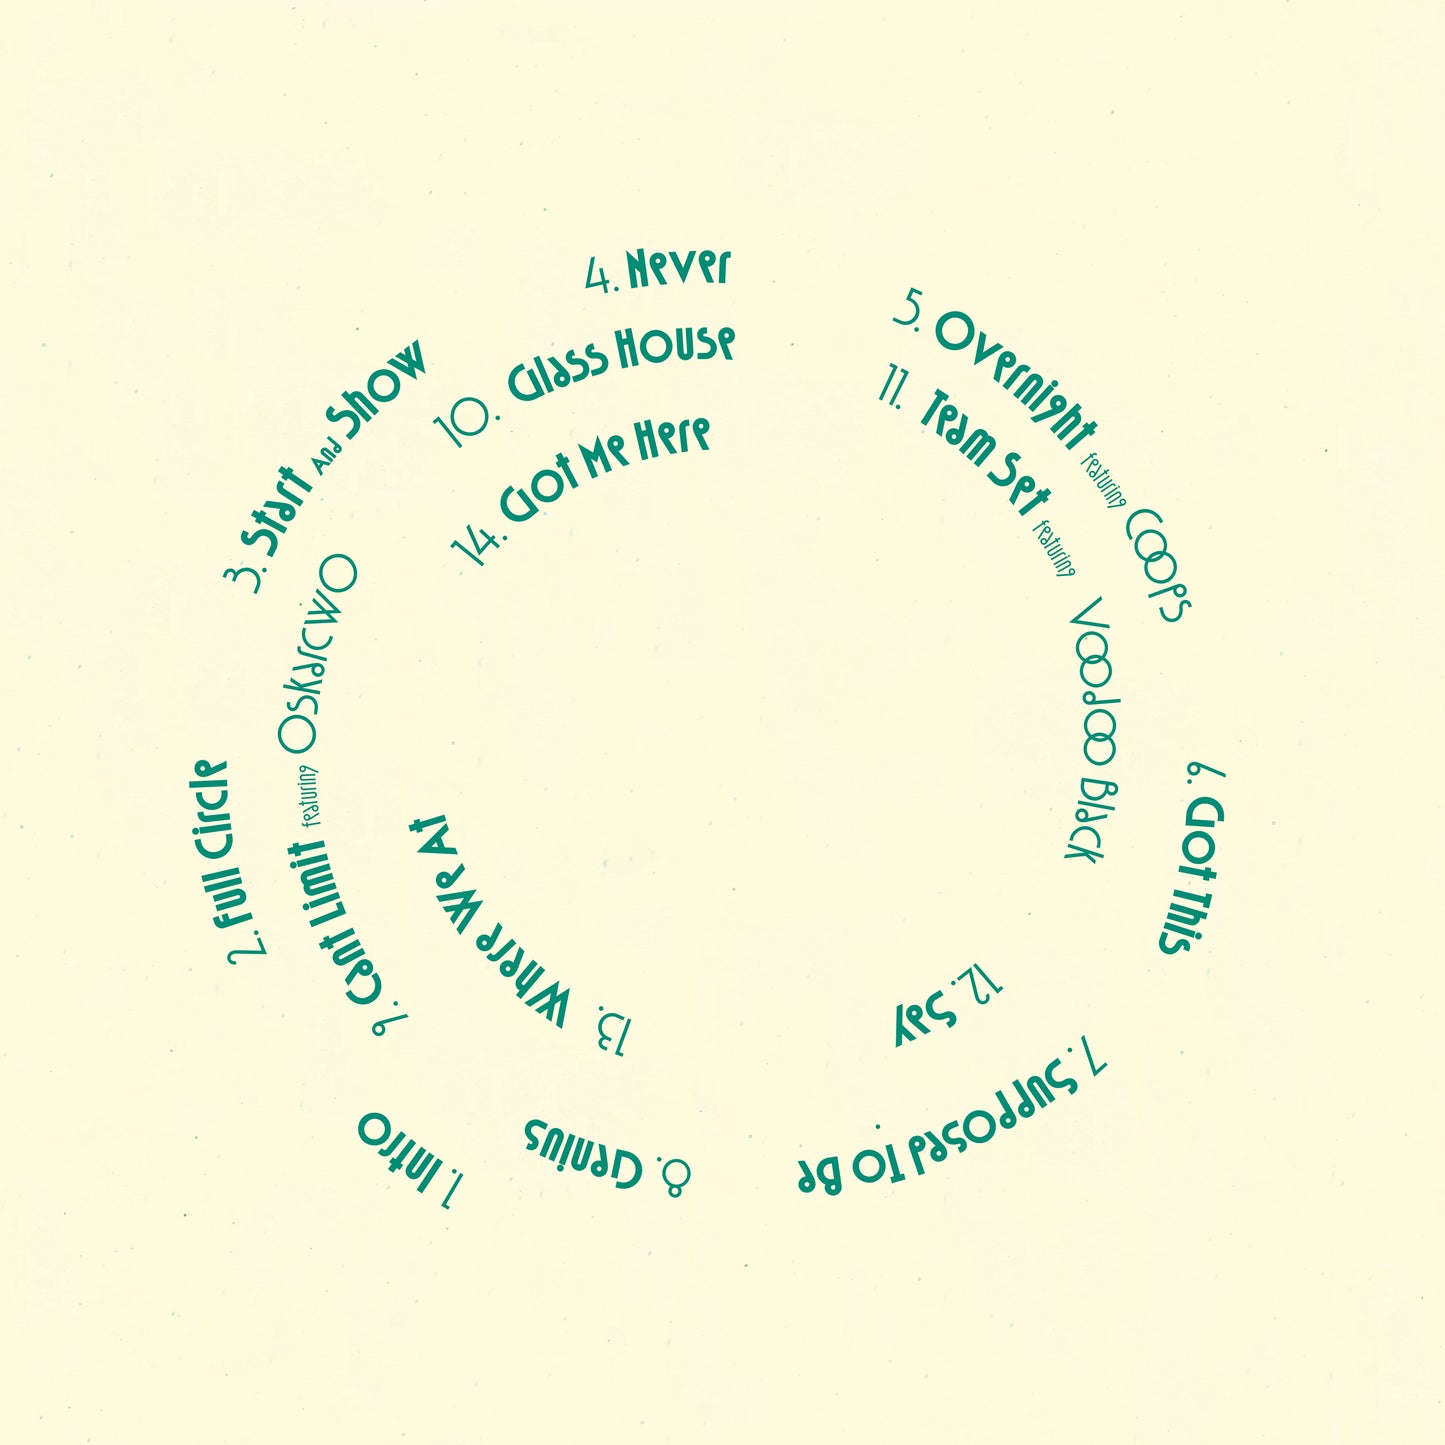 1. Intro
2. Full Circle
3. Start And Show
4. Never
5. Overnight featuring Coops
6. Got This
7. Supposed To Be
8. Genius
9. Cant Limit featuring OskarcwO
10. Glass House
11. Team Set featuring Voodoo Black
12. Say
13. Where We At
14. Got Me Here